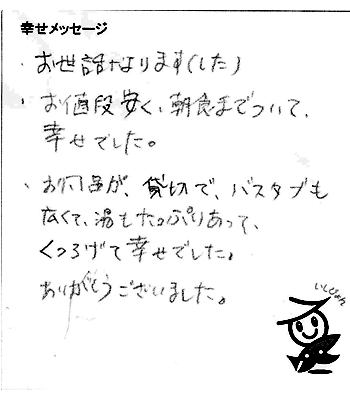 幸せメッセージ
・お世話なります(した)
・お値段安く、朝食までついて、
幸せでした。
・お風呂が、貸切で、バスタブも
広くて、湯もたっぷりあって、
くつろげて幸せでした。
ありがとうございました。